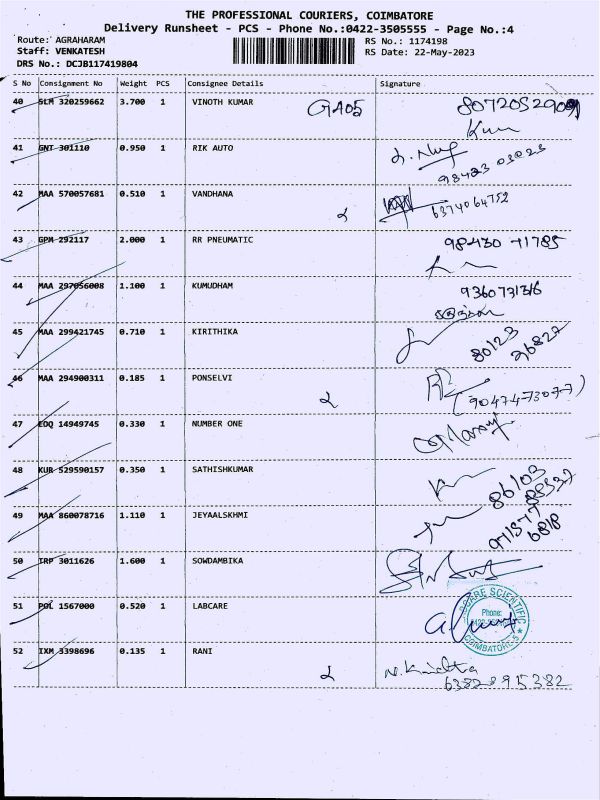 THE PROFESSIONAL COURIERS, COIMBATORE
Delivery Runsheet - PCS - Phone No.:0422-3505555 - Page No.:4
Route: AGRAHARAM
RS No.: 1174198
Staff: VENKATESH
RS Date: 22-May-2023
DRS No.: DCJB117419804
S No Consignment No Weight PCS Consignee Details Signature
40 SLM 320259662 3.700 1 VINOTH KUMAR GA05
41 GNT 301110 0.950 1 RIK AUTO
98423 03023
42 MAA 570057681 0.510 1 VANDHANA 2 6374064752
43 GPM 292117 2.000 1 RR PNEUMATIC 98430 71785
44 MAA 297056008 1.100 1 KUMUDHAM 9360731316
45 MAA 299421745 0.710 1 KIRITHIKA 80123
26827
46 MAA 294900311 0.185 1 PONSELVI 2 (9047473077)
47 EOQ 14949745 0.330 1 NUMBER ONE
48 KUR 529590157 0.350 1 SATHISHKUMAR 86103
88337
49 MAA 860078716 1.110 1 JEYAALSKHMI 97577
6818
50 TRP 3011626 1.600 1 SOWDAMBIKA
51 POL 1567000 0.520 1 LABCARE
SCIENTIFIC
Phone:
COIMBATORE-5
52 IXM 3398696 0.135 1 RANI 2
6382895382